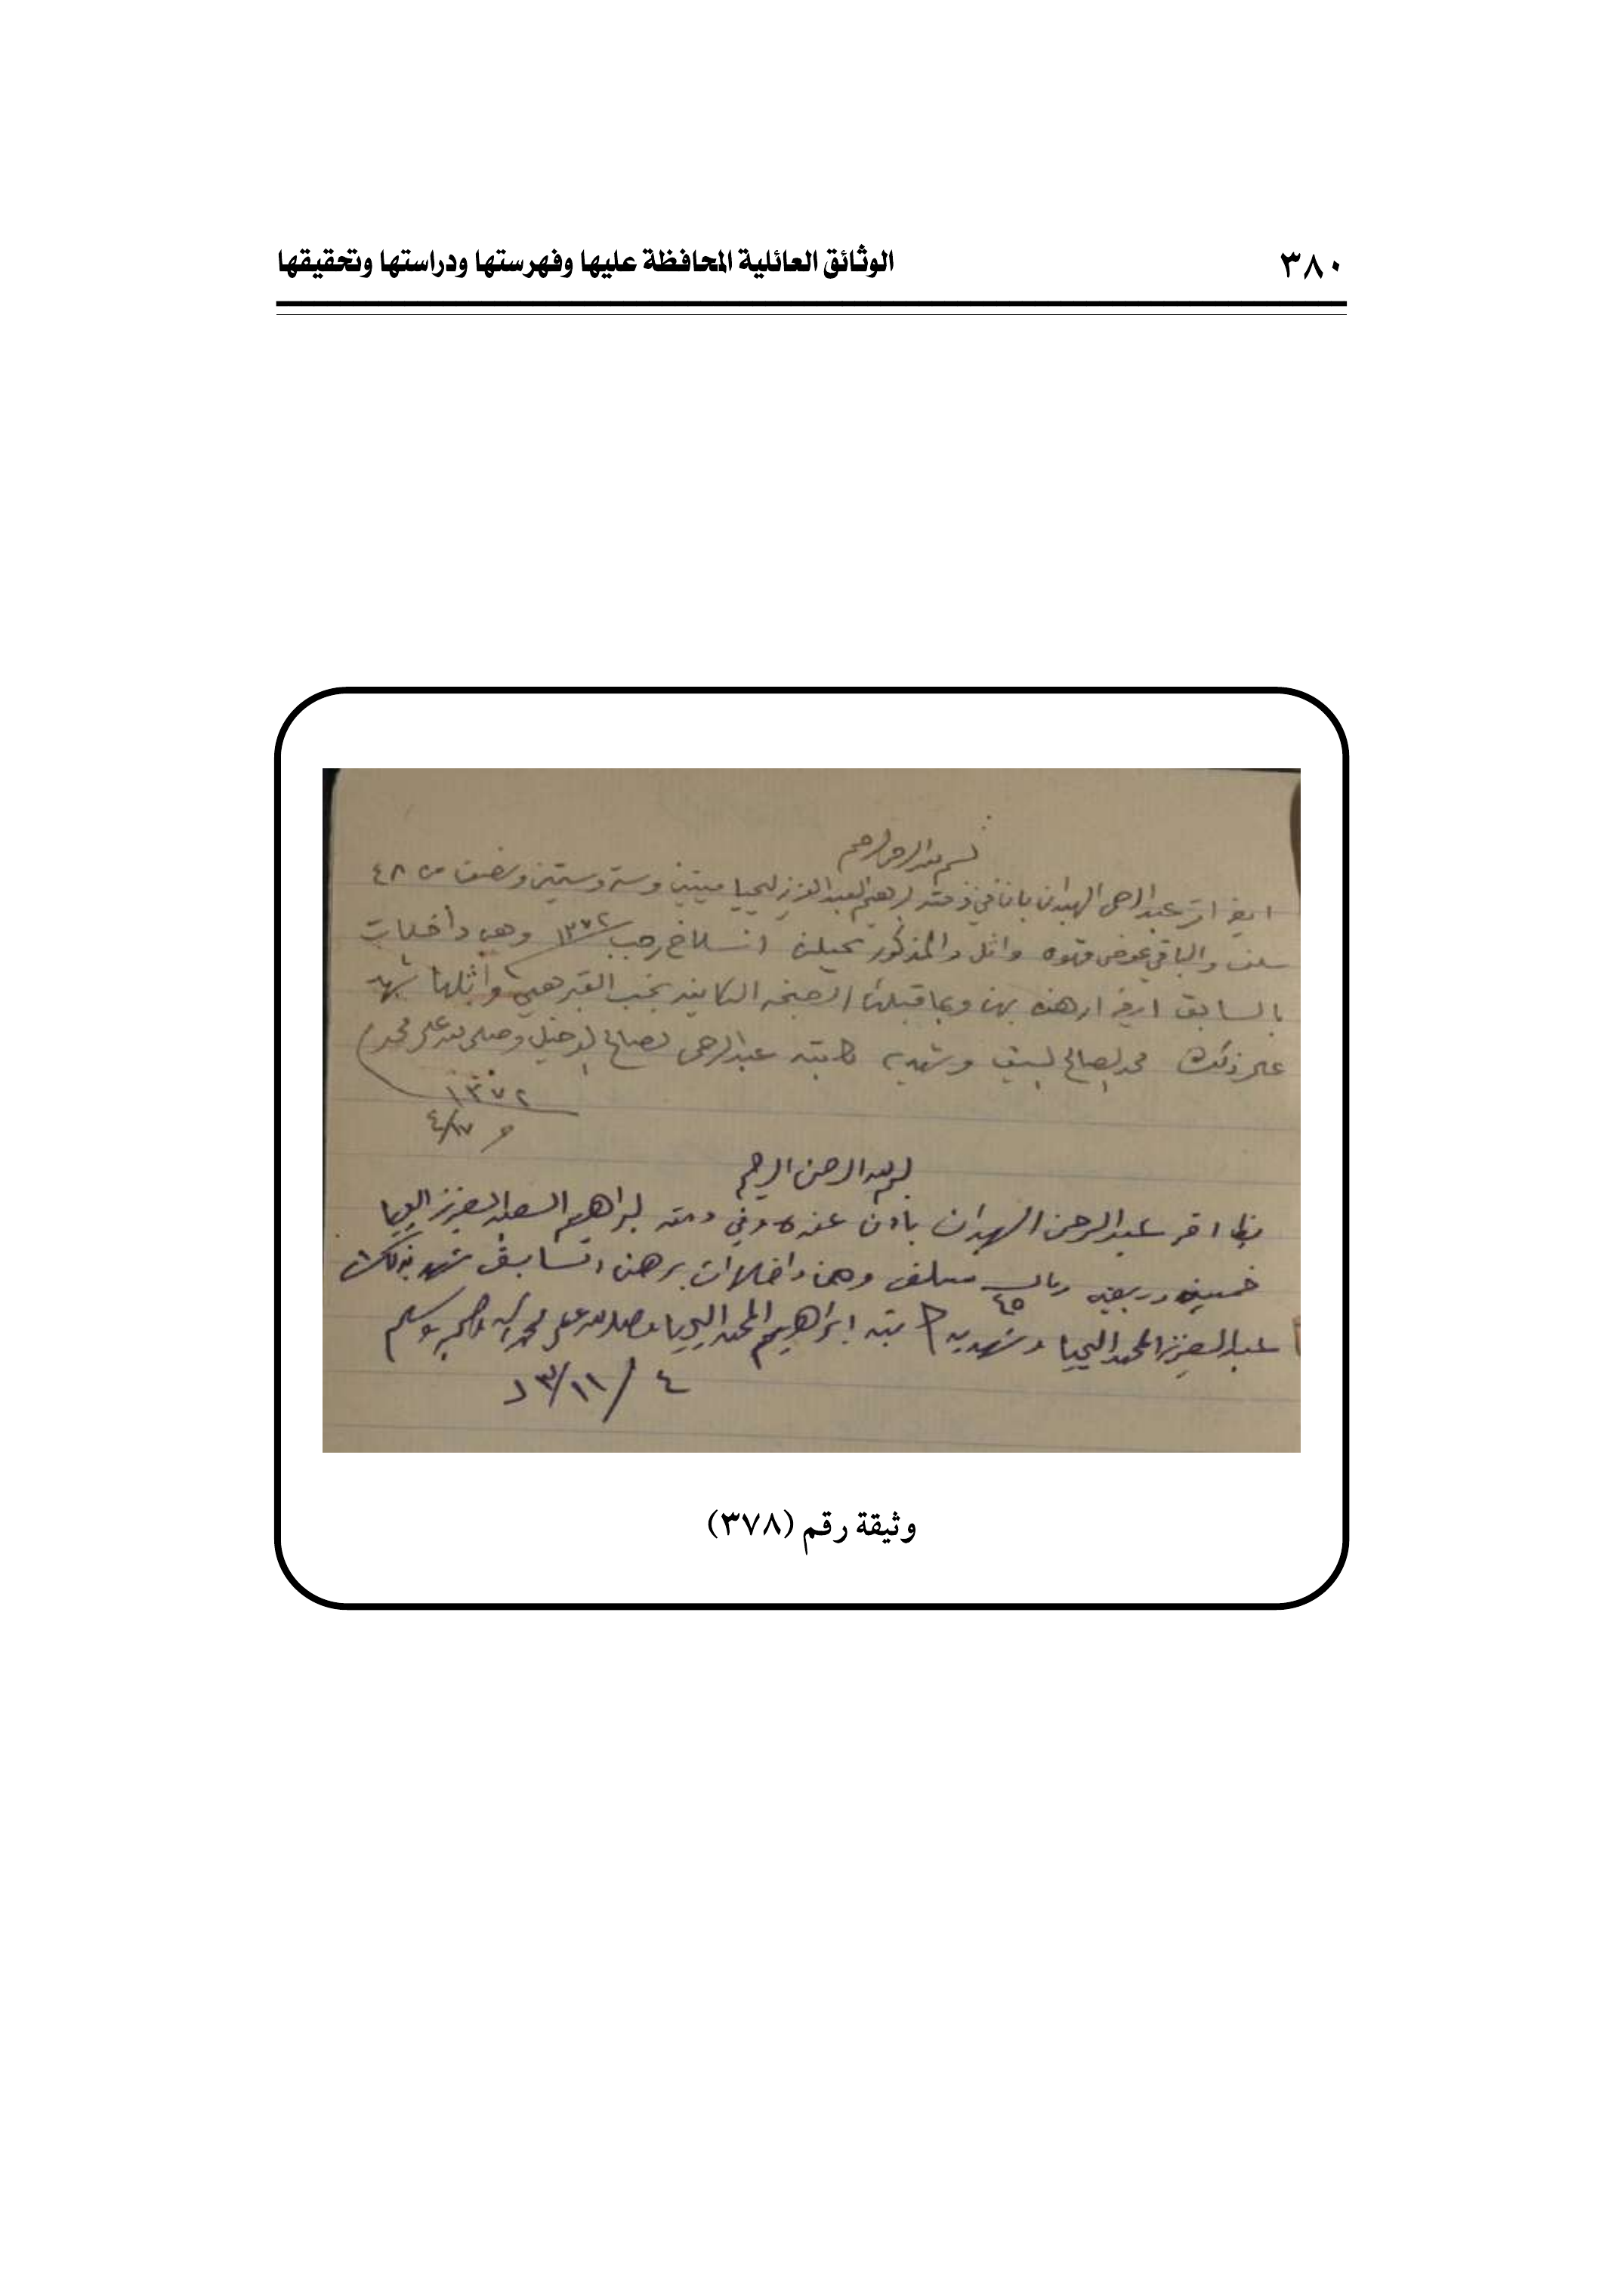 ٣٨٠
الوثائق العائلية المحافظة عليها وفهرستها ودراستها وتحقيقها
بسم الله الرحمن الرحيم
ايض اقر عبدالرحمن الهبدان بان في ذمته لبرهيم العبدالعزيز اليحيا ميتين وستة وستين ونصف من ٤٨
سلف والباقي عوض قهوه والمذكور يحلن انسلاخ رجب ١٣٧٢ وهي داخلات
بالسابق ايض ارهنه بهن وبما قبلهن شهد
على ذلك محمد الصالح السيف وشهد به كاتبه عبدالرحمن الصالح وصلى الله على محمد
١٣٧٢
م ٤/١٧
بسم الله الرحمن الرحيم
ايظا اقر عبدالرحمن الهبدان بأن عنده وفي ذمته لبراهيم العبدالعزيز اليحيا
ريال سلف وهن داخلات برهن السابق شهد بذلك
٤٥
عبدالعزيز المحمد اليحيا وشهد به كاتبه ابراهيم المحمد اليحيا وصلى الله على محمد اله وصحبه وسلم
٤ / ١١/
وثيقة رقم (٣٧٨)